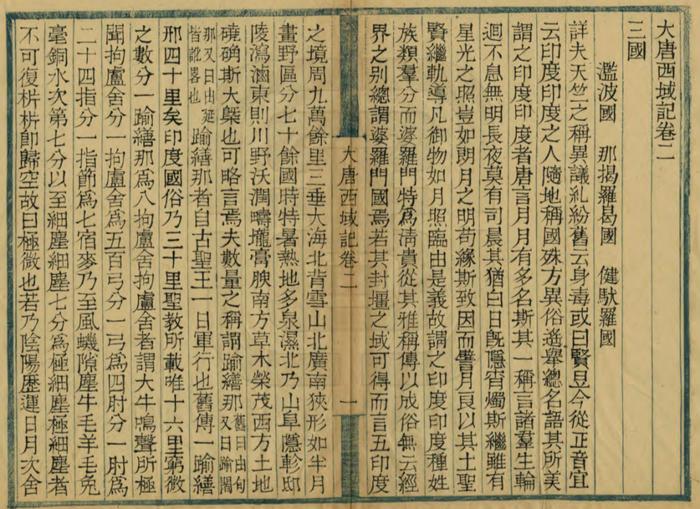 大唐西域記卷二
三國
濫波國　那揭羅曷國　健馱羅國
詳夫天竺之稱異議糺紛舊云身毒或曰賢豆今從正音宜
云印度印度之人隨地稱國殊方異俗遙舉總名語其所美
謂之印度印度者唐言月月有多名斯其一稱言諸羣生輪
迴不息無明長夜莫有司晨其猶白日旣隱宵燭斯繼雖有
星光之照豈如朗月之明苟緣斯致因而譬月良以其土聖
賢繼軌導凡御物如月照臨由是義故謂之印度印度種姓
族類羣分而婆羅門特爲淸貴從其雅稱傳以成俗無云經
界之別總謂婆羅門國焉若其封疆之域可得而言五印度
大唐西域記卷二　一
之境周九萬餘里三垂大海北背雪山北廣南狹形如半月
畫野區分七十餘國時特暑熱地多泉濕北乃山阜隱軫邱
陵瀉滷東則川野沃潤疇壠膏腴南方草木榮茂西方土地
磽确斯大槩也可略言焉夫數量之稱謂踰繕那舊曰由旬又曰踰闍
那又曰由延皆訛畧也踰繕那者自古聖王一日軍行也舊傳一踰繕
那四十里矣印度國俗乃三十里聖敎所載唯十六里窮微
之數分一踰繕那爲八拘盧舍拘盧舍者謂大牛鳴聲所極
聞拘盧舍分一拘盧舍爲五百弓分一弓爲四肘分一肘爲
二十四指分一指節爲七宿麥乃至風蟣隙塵牛毛羊毛兔
毫銅水次第七分以至細塵細塵七分爲極細塵極細塵者
不可復析析卽歸空故曰極微也若乃陰陽歷運日月次舍